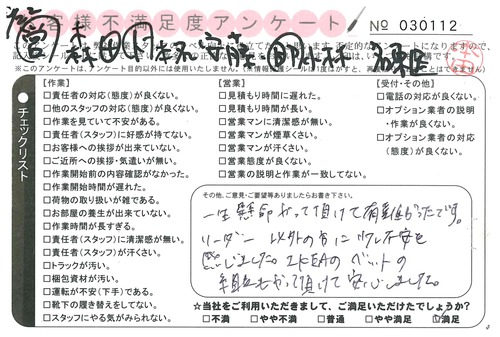 お客様不満足度アンケート
№ 030112
※このアンケートは、アンケート目的以外には使用いたしません。
チェックリスト
【作業】
□責任者の対応(態度)が良くない。
□他のスタッフの対応(態度)が良くない。
□作業を見ていて不安がある。
□責任者(スタッフ)に好感が持てない。
□お客様への挨拶が出来ていない。
□ご近所への挨拶・気遣いが無い。
□作業開始前の内容確認がなかった。
□作業開始時間が遅れた。
□荷物の取り扱いが雑である。
□お部屋の養生が出来ていない。
□作業時間が長すぎる。
□責任者(スタッフ)に清潔感が無い。
□責任者(スタッフ)が汗くさい。
□トラックが汚い。
□梱包資材が汚い。
□運転が不安(下手)である。
□靴下の履き替えをしてない。
□スタッフにやる気がみられない。
【営業】
□見積もり時間に遅れた。
□見積もり時間が長い。
□営業マンに清潔感が無い。
□営業マンが煙草くさい。
□営業マンが汗くさい。
□営業態度が良くない。
□営業の説明と作業が一致してない。
【受付・その他】
□電話の対応が良くない。
□オプション業者の説明・作業が良くない。
□オプション業者の対応(態度)が良くない。
その他、ご意見・ご要望等ありましたらお書き下さい。
一生懸命やって頂けて有難かったです。
リーダー以外の方に少し不安を
感じました。IKEAのベットの
★当社をご利用いただきまして、ご満足いただけたでしょうか?
□不満 □やや不満 □普通 □やや満足 ☑満足